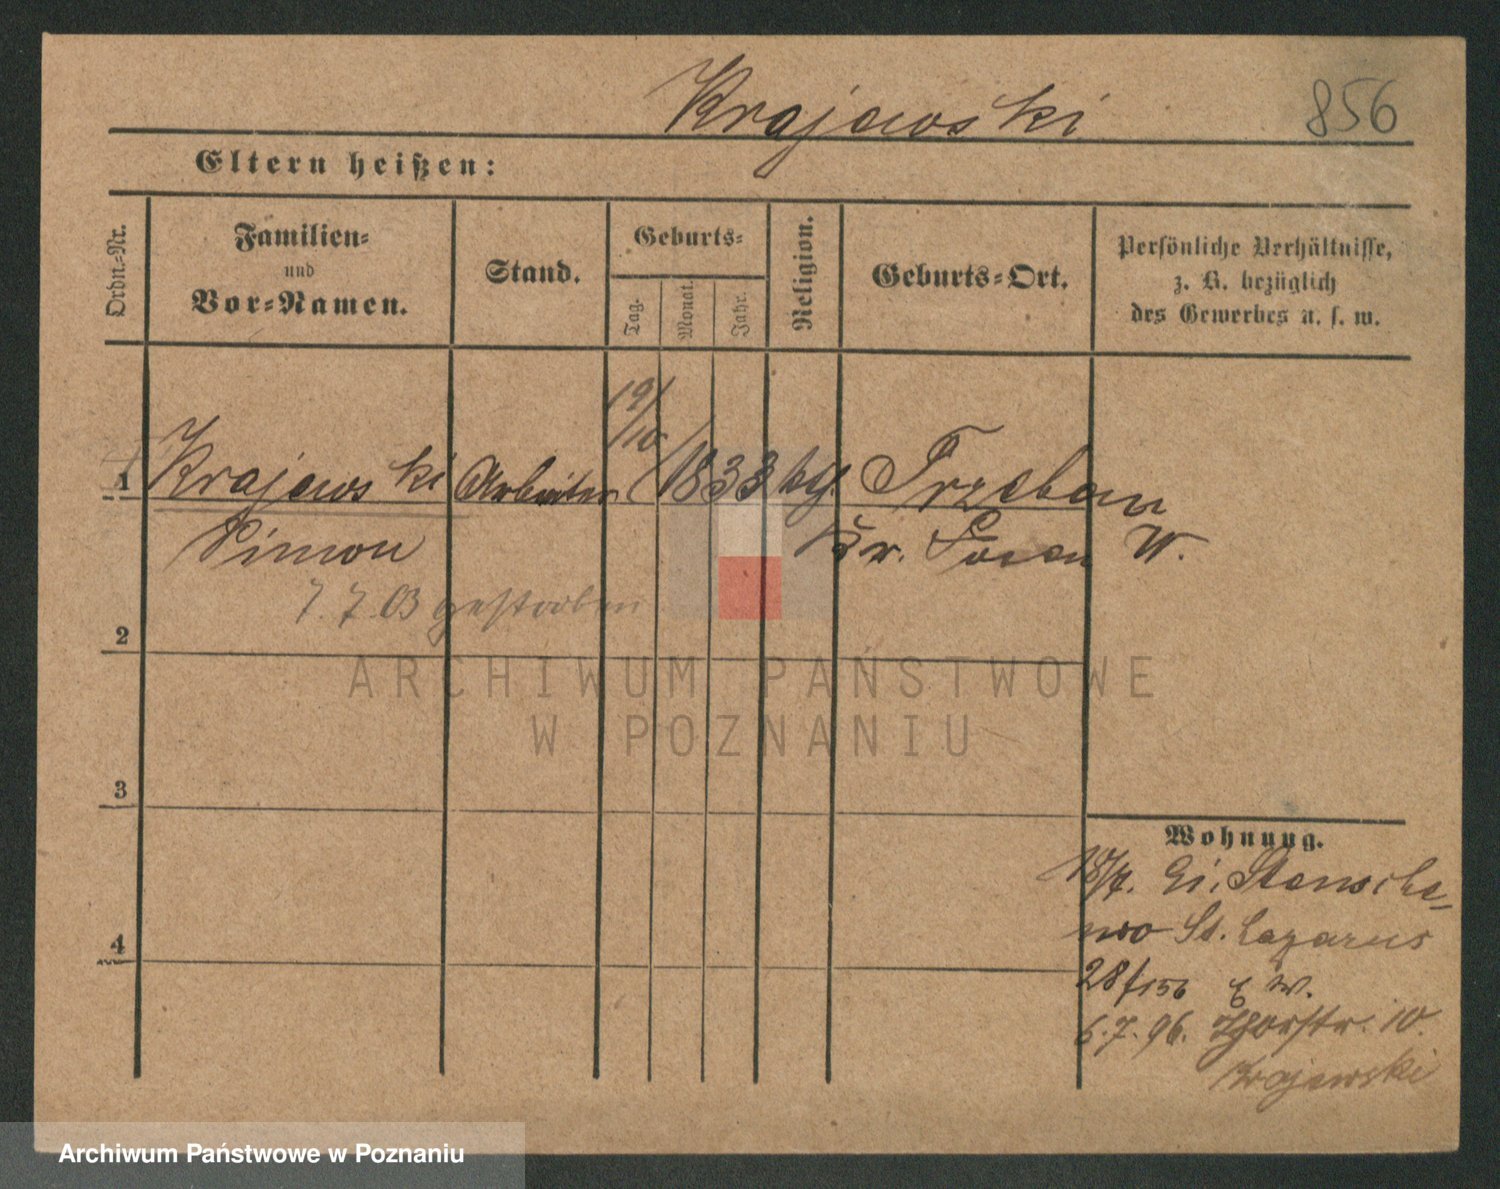 Krajewski
856
Eltern heißen:
Ordn.-Nr.
Familien-
und
Vor-Namen.
Stand.
Geburts-
Tag.
Monat.
Jahr.
Religion.
Geburts-Ort.
Persönliche Verhältnisse,
z. B. bezüglich
des Gewerbes u. s. w.
19/10
1 Krajewski Arbeiter 1833 Trzebau
Simon Kr. Posen W.
7.7.03 gestorben
2
ARCHIWUM PAŃSTWOWE
W POZNANIU
3
Wohnung.
18/4. Stensche-
wo St. Lazarus
4
28/156 W.
6.7.96. Thorstr. 10.
Krajewski
Archiwum Państwowe w Poznaniu